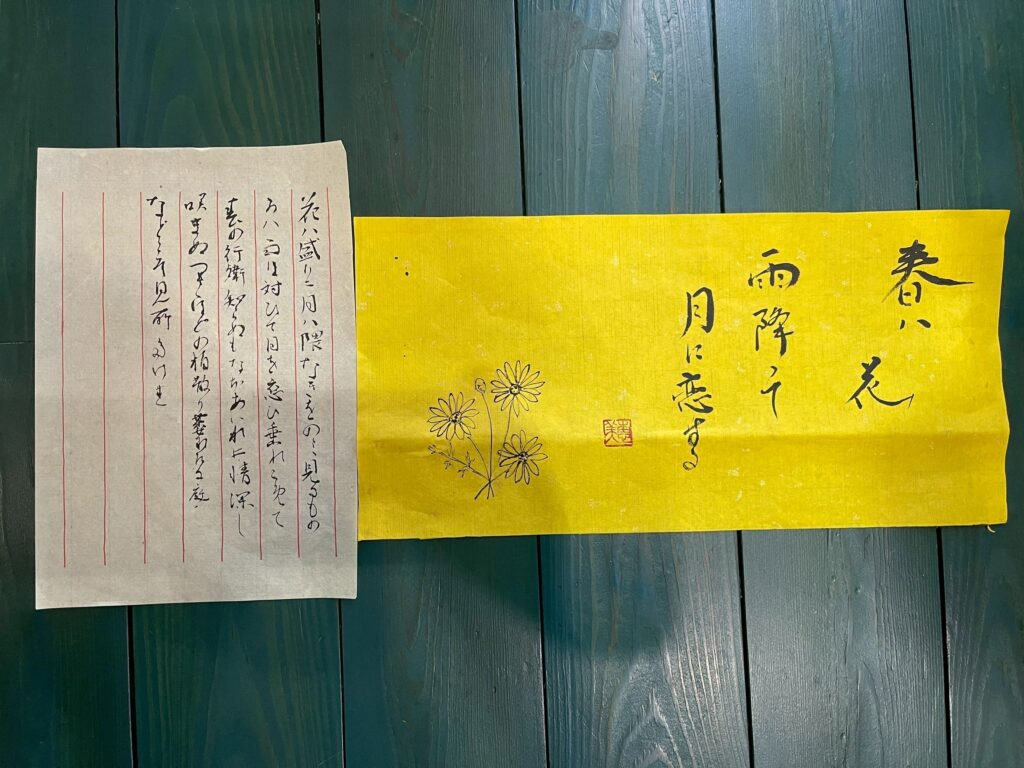 春ハ
花
雨降りて
月に恋する
花ハ盛りに月ハ隈なきをのミ見るもの
かハ雨に対ひて月を恋ひ垂れこめて
春の行衛知らぬもなほあハれに情深し
咲きぬべきほどの梢散り萎れたる庭
などこそ見所多けれ